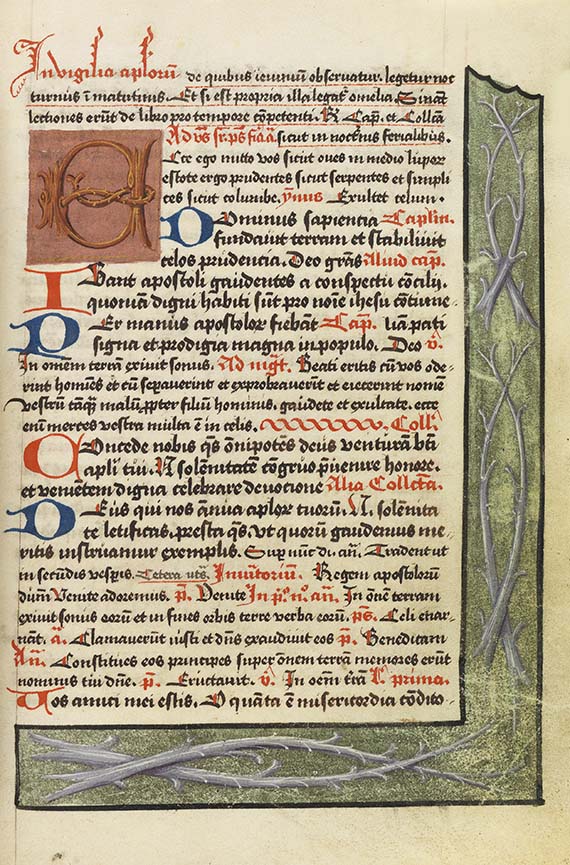 In vigilia aplorũ de quibus ieiuniũ observatur. legetur noc
turnus ĩ matutinis. Et si est propria illa legat᷑ omelia. Sinãt
lectiones erũt de libro pro tempore cõpetenti. R̃ Cap̃. et Collcã
Ad vs̃ sr̃. ps̃ fiãã sicut in noctr̃nis ferialibus.
Ecce ego mitto vos sicut oves in medio lupor
estote ergo prudentes sicut serpentes et simpli
ces sicut columbe. ỹnus Exultet celum.
Dominus sapientia Caplm̃.
fundavit terram et stabilivit
celos prudencia. Deo grãs Aliud cap̃.
Ibant apostoli gaudentes a conspectu cõcilij.
quoniam digni habiti sũt pro noĩe ihesu cõtume
Per manus apostolor fiebãt Cap̃. liam pati
signa et prodigia magna in populo. Deo ṽ.
In omem̃ terrã exivit sonus. Ad mgt̃. Beati eritis cũ vos ode
rint homẽs et cũ separverint et exprobraverĩt et eiecerint nomẽ
vestrũ tãq̃ malũ ꝓpter filiũ hominis. gaudete et exultate. ecce
enĩ merces vestra multa ẽ in celis. Coll̃.
Concede nobis q̃s om̃ipotẽs deus venturã btĩ
apli tui. N solẽnitatẽ cõgruo p̃uenire honore.
et veniẽtem digna celebrare devotione Alia Collcta.
Deus qui nos ãnua aplor tuorũ. N. solẽnita
te letificas. presta q̃s. vt quorũ gaudemus me
ritis instruamur exemplis. Sup niũc di. añ. Tradent ut
in secũdis vesp̃is. Cetera utš. Inuitoriũ. Regem apostolorũ
dñm Venite adoremus. p̃. Venite In p̃°. n°. añ. In oẽm terram
exivit sonus eorũ et in fines orbis terre verba eorũ. ps̃. Celi enar
rãt. ã. Clamaverũt iusti et dñs exaudivit eos p̃. Benedicam
Añ. Constitues eos principes super om̃em terrã memores erũt
nominis tui dñe. p̃. Eructavit. ṽ. In oem̃ tr̃ã L̃ prima.
Vos amici mei estis. O quãta ẽ misericordia cõdito